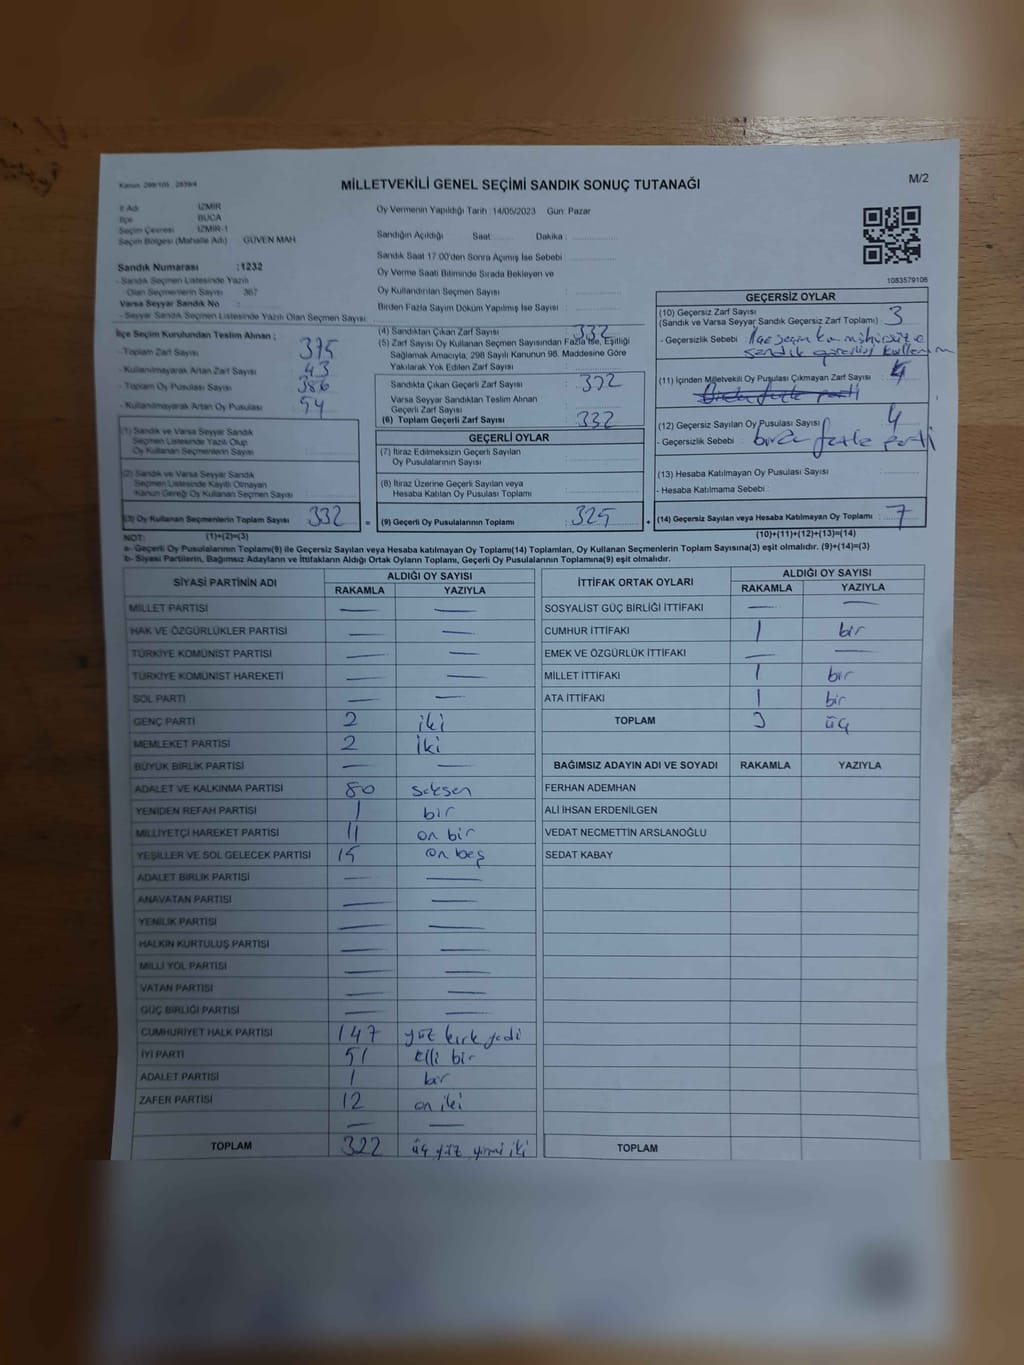 Kanun: 298/105 , 2839/4
MİLLETVEKİLİ GENEL SEÇİMİ SANDIK SONUÇ TUTANAĞI
M/2
İl Adı İZMİR
İlçe BUCA
Seçim Çevresi İZMİR-1
Seçim Bölgesi (Mahalle Adı) GÜVEN MAH
Sandık Numarası :1232
- Sandık Seçmen Listesinde Yazılı
Olan Seçmenlerin Sayısı 367
Varsa Seyyar Sandık No :
- Seyyar Sandık Seçmen Listesinde Yazılı Olan Seçmen Sayısı
Oy Vermenin Yapıldığı Tarih :14/05/2023 Gün: Pazar
Sandığın Açıldığı Saat: Dakika :
Sandık Saat 17.00'den Sonra Açımış İse Sebebi
Oy Verme Saati Bitiminde Sırada Bekleyen ve
Oy Kullandırılan Seçmen Sayısı
Birden Fazla Sayım Döküm Yapılmış İse Sayısı :
1083579106
İlçe Seçim Kurulundan Teslim Alınan ;
- Toplam Zarf Sayısı 375
- Kullanılmayarak Artan Zarf Sayısı 43
- Toplam Oy Pusulası Sayısı 386
- Kullanılmayarak Artan Oy Pusulası 54
(1) Sandık ve Varsa Seyyar Sandık
Seçmen Listesinde Yazılı Olup
Oy Kullanan Seçmenlerin Sayısı
(2) Sandık ve Varsa Seyyar Sandık
Seçmen Listesinde Kayıtlı Olmayan
Kanun Gereği Oy Kullanan Seçmen Sayısı
(3) Oy Kullanan Seçmenlerin Toplam Sayısı 332 =
(4) Sandıktan Çıkan Zarf Sayısı 332
(5) Zarf Sayısı Oy Kullanan Seçmen Sayısından Fazla ise, Eşitliği
Sağlamak Amacıyla, 298 Sayılı Kanunun 98. Maddesine Göre
Yakılarak Yok Edilen Zarf Sayısı :
Sandıkta Çıkan Geçerli Zarf Sayısı : 332
Varsa Seyyar Sandıktan Teslim Alınan
Geçerli Zarf Sayısı
(6) Toplam Geçerli Zarf Sayısı : 332
GEÇERLİ OYLAR
(7) İtiraz Edilmeksizin Geçerli Sayılan
Oy Pusulalarının Sayısı
(8) İtiraz Üzerine Geçerli Sayılan veya
Hesaba Katılan Oy Pusulası Toplamı
(9) Geçerli Oy Pusulalarının Toplamı : 325 +
GEÇERSİZ OYLAR
(10) Geçersiz Zarf Sayısı
(Sandık ve Varsa Seyyar Sandık Geçersiz Zarf Toplamı) : 3
- Geçersizlik Sebebi : ilçe seçim kur mühürsüz
sandık görevlisi
(11) İçinden Milletvekili Oy Pusulası Çıkmayan Zarf Sayısı
(12) Geçersiz Sayılan Oy Pusulası Sayısı 4
- Geçersizlik Sebebi : birden fazla parti
(13) Hesaba Katılmayan Oy Pusulası Sayısı
- Hesaba Katılmama Sebebi :
(14) Geçersiz Sayılan veya Hesaba Katılmayan Oy Toplamı : 7
NOT: (1)+(2)=(3) (10)+(11)+(12)+(13)=(14)
a- Geçerli Oy Pusulalarının Toplamı(9) ile Geçersiz Sayılan veya Hesaba katılmayan Oy Toplamı(14) Toplamları, Oy Kullanan Seçmenlerin Toplam Sayısına(3) eşit olmalıdır. (9)+(14)=(3)
b- Siyasi Partilerin, Bağımsız Adayların ve İttifakların Aldığı Ortak Oyların Toplamı, Geçerli Oy Pusulalarının Toplamına(9) eşit olmalıdır.
SİYASİ PARTİNİN ADI ALDIĞI OY SAYISI
RAKAMLA YAZIYLA
MİLLET PARTİSİ — —
HAK VE ÖZGÜRLÜKLER PARTİSİ — —
TÜRKİYE KOMÜNİST PARTİSİ — —
TÜRKİYE KOMÜNİST HAREKETİ — —
SOL PARTİ — —
GENÇ PARTİ 2 iki
MEMLEKET PARTİSİ 2 iki
BÜYÜK BİRLİK PARTİSİ — —
ADALET VE KALKINMA PARTİSİ 80 seksen
YENİDEN REFAH PARTİSİ 1 bir
MİLLİYETÇİ HAREKET PARTİSİ 11 on bir
YEŞİLLER VE SOL GELECEK PARTİSİ 15 on beş
ADALET BİRLİK PARTİSİ — —
ANAVATAN PARTİSİ — —
YENİLİK PARTİSİ — —
HALKIN KURTULUŞ PARTİSİ — —
MİLLİ YOL PARTİSİ — —
VATAN PARTİSİ — —
GÜÇ BİRLİĞİ PARTİSİ — —
CUMHURİYET HALK PARTİSİ 147 yüz kırk yedi
İYİ PARTİ 51 elli bir
ADALET PARTİSİ 1 bir
ZAFER PARTİSİ 12 on iki
— —
TOPLAM 322 üç yüz yirmi iki
İTTİFAK ORTAK OYLARI ALDIĞI OY SAYISI
RAKAMLA YAZIYLA
SOSYALİST GÜÇ BİRLİĞİ İTTİFAKI — —
CUMHUR İTTİFAKI 1 bir
EMEK VE ÖZGÜRLÜK İTTİFAKI — —
MİLLET İTTİFAKI 1 bir
ATA İTTİFAKI 1 bir
TOPLAM 3 üç
BAĞIMSIZ ADAYIN ADI VE SOYADI RAKAMLA YAZIYLA
FERHAN ADEMHAN
ALİ İHSAN ERDENİLGEN
VEDAT NECMETTİN ARSLANOĞLU
SEDAT KABAY
TOPLAM